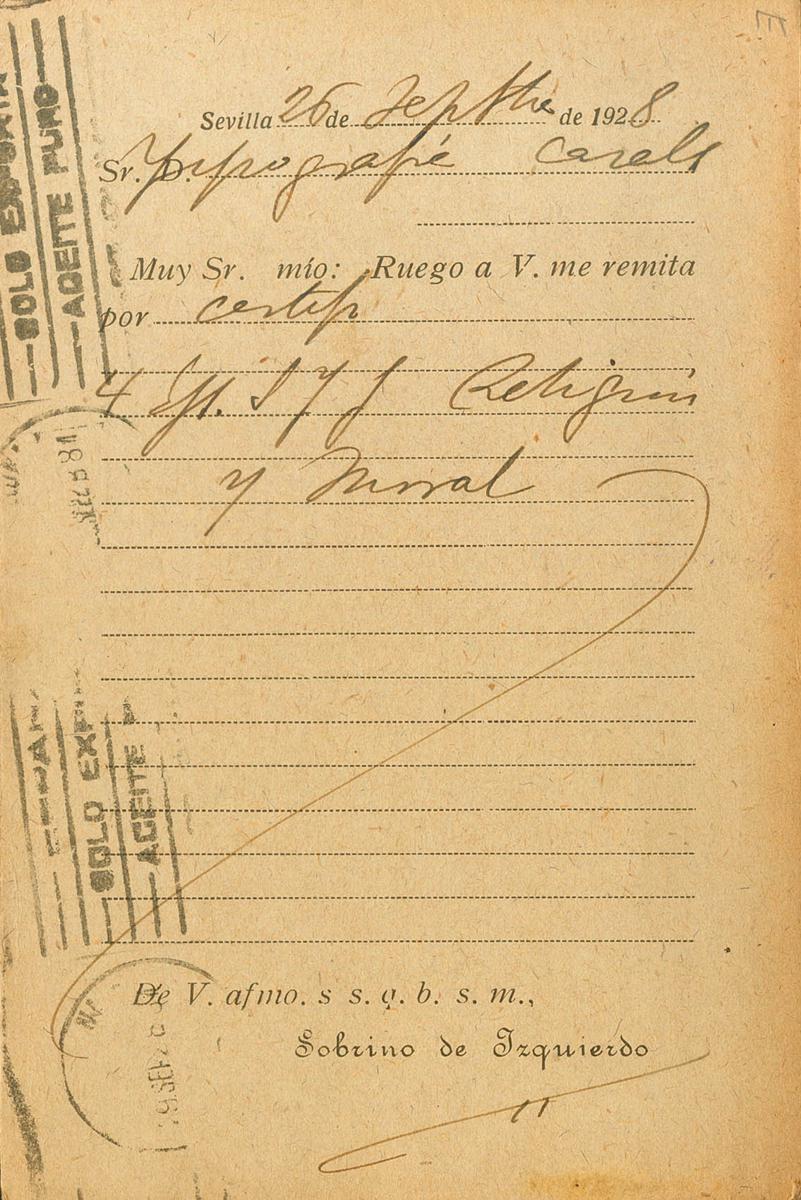 Sevilla 26 de Septbre de 1928
Sr. D. Tipografía Casals
Muy Sr. mío: Ruego a V. me remita
por certif
4 Religión
y Moral
De V. afmo. s s. q. b. s. m.,
Sobrino de Izquierdo
SOLO EXPORTA
ACEITE PURO
ESPAÑ
SOLO EXP
ACEITE